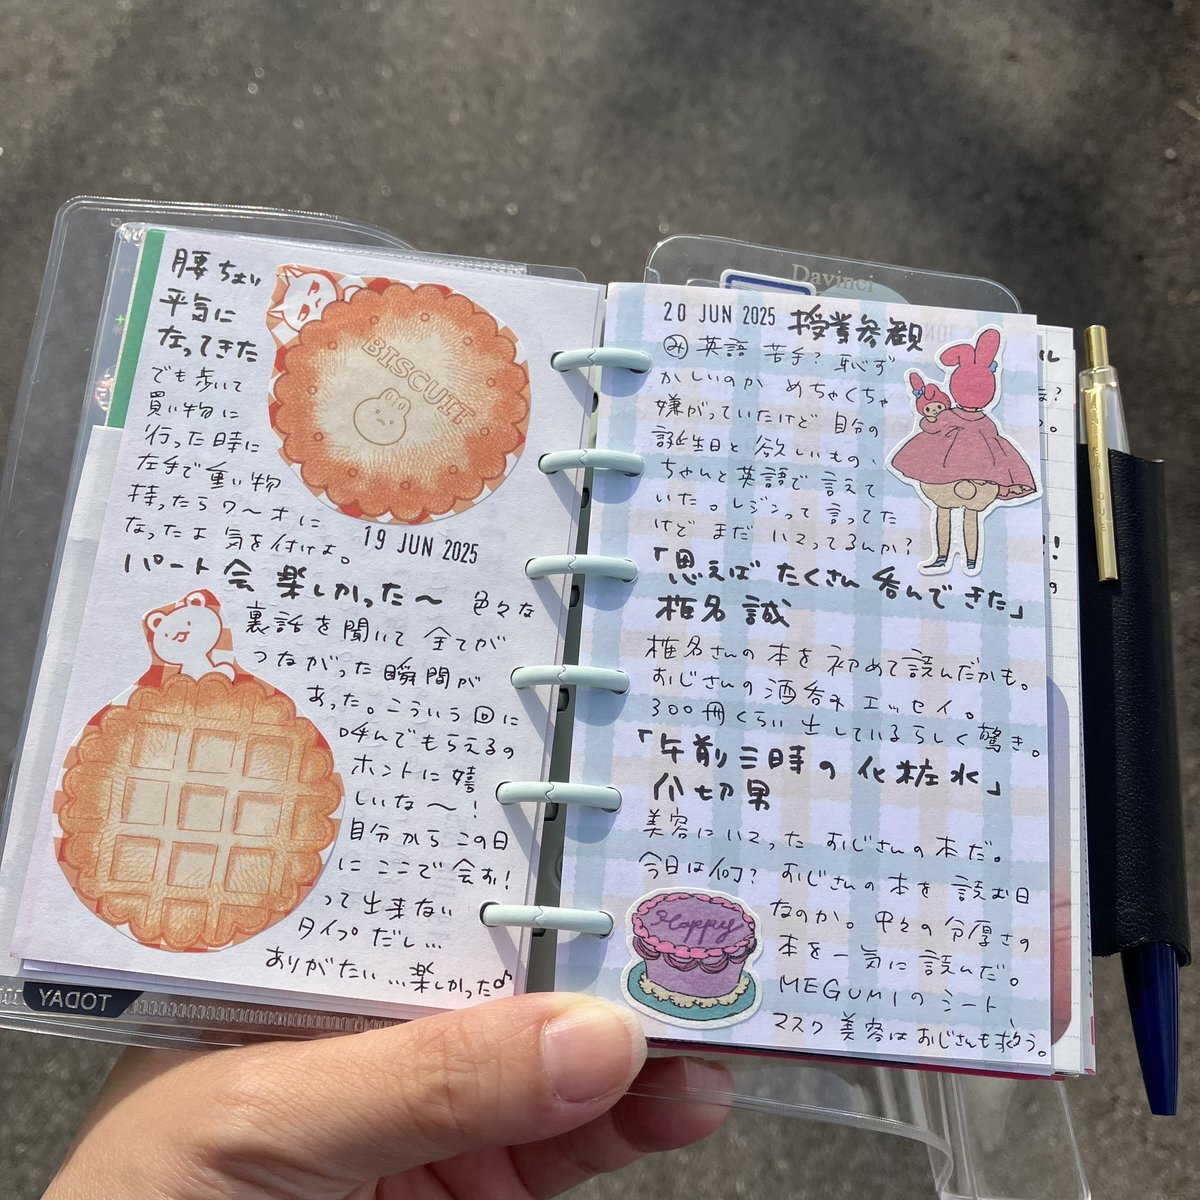 腰ちょい
平気に
なってきた
でも歩いて
買い物に
行った時に
左手で重い物
持ったらワーオに
なったよ 気を付けよ。
BISCUIT
19 JUN 2025
パート会 楽しかった〜 色々な
裏話を聞いて 全てが
つながった瞬間が
あった。こういう回に
呼んでもらえるの
ホントに嬉
しいな〜!
自分からこの日
にここで会お!
って出来ない
タイプだし…
ありがたい…楽しかった♪
TODAY
Davinci
20 JUN 2025 授業参観
み 英語 苦手? 恥ず
かしいのか めちゃくちゃ
嫌がっていたけど 自分の
誕生日と 欲しいもの
ちゃんと英語で言えて
いた。レジンって言ってた
けど まだ ハマってるんか?
「思えば たくさん 呑んできた」
椎名 誠
椎名さんの本を初めて読んだかも。
おじさんの酒呑みエッセイ。
300冊くらい出しているらしく驚き。
「午前三時の化粧水」
爪切男
美容にハマったおじさんの本だ。
今日は何? おじさんの本を読む日
なのか。中々の分厚さの
本を一気に読んだ。
MEGUMIのシート、
マスク美容はおじさんも救う。
Happy